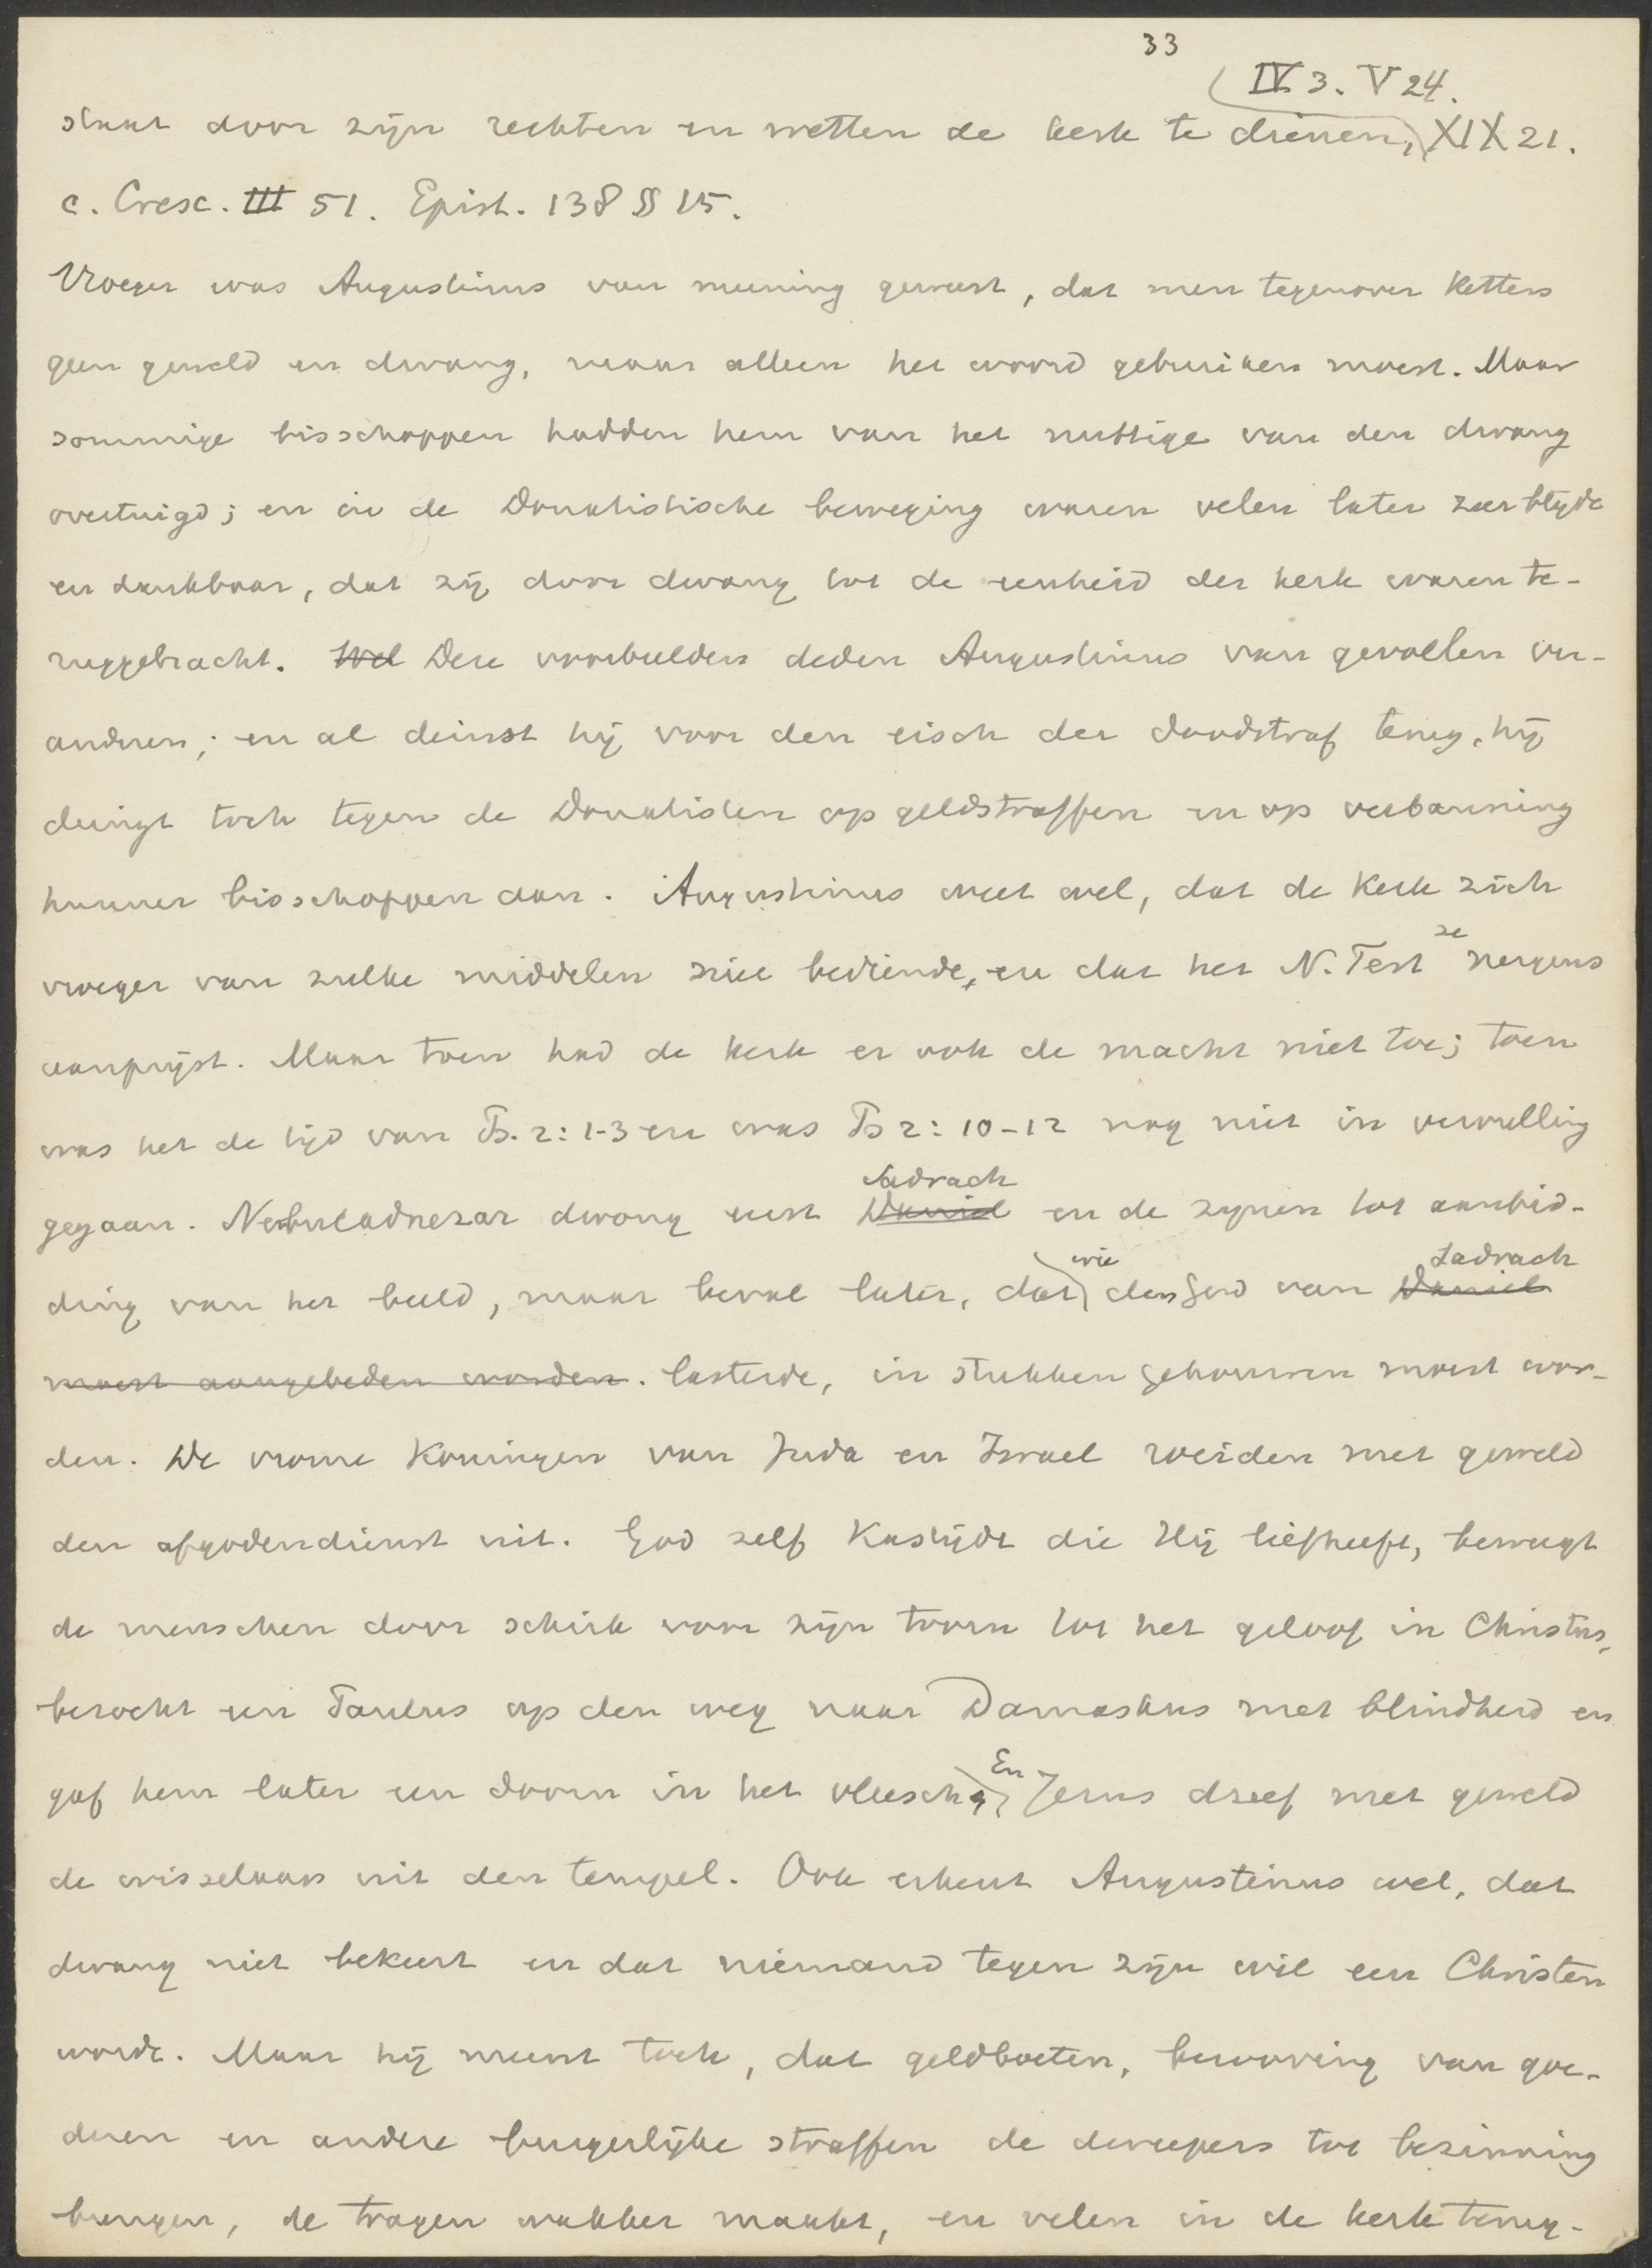 33
IV 3. V 24.
staat door zijn rechten en wetten de kerk te dienen, XIX 21.
c. Cresc. III 51. Epist. 138 § 15.
Vroeger was Augustinus van meening geweest, dat men tegenover Ketters
geen geweld en dwang, maar alleen het woord gebruiken moest. Maar
sommige bisschoppen hadden hem van het nuttige van den dwang
overtuigd; en in de Donatistische beweging waren velen later zeer blijde
en dankbaar, dat zij door dwang tot de eenheid der kerk waren te-
ruggebracht. Wel Deze voorbeelden deden Augustinus van gevoelen ver-
anderen; en al deinst hij voor den eisch der doodstraf terug, hij
dringt toch tegen de Donatisten op geldstraffen en op verbanning
hunner bisschoppen aan. Augustinus weet wel, dat de Kerk zich
vroeger van zulke middelen niet bediende, en dat het N. Test ze nergens
aanprijst. Maar toen had de kerk er ook de macht niet toe; toen
was het de tijd van Ps. 2: 1-3 en was Ps 2: 10-12 nog niet in vervulling
gegaan. Nebucadnezar dwong eerst Daniel Sadrach en de zijnen tot aanbid-
ding van het beeld, maar beval later, dat wie den God van Daniel Sadrach
moest aangebeden worden. lasterde, in stukken gehouwen moest wor-
den. De vrome Koningen van Juda en Israel roeiden met geweld
den afgodendienst uit. God zelf Kastijdt die Hij liefheeft, beweegt
de menschen door schrik voor zijn toorn tot het geloof in Christus,
bezocht een Paulus op den weg naar Damaskus met blindheid en
gaf hem later een doorn in het vleesch; En Jezus dreef met geweld
de wisselaars uit den tempel. Ook erkent Augustinus wel, dat
dwang niet bekeert en dat niemand tegen zijn wil een Christen
wordt. Maar hij meent toch, dat geldboeten, berooving van goe-
deren en andere burgerlijke straffen de dweepers tot bezinning
brengen, de tragen wakker maakt, en velen in de kerk terug-